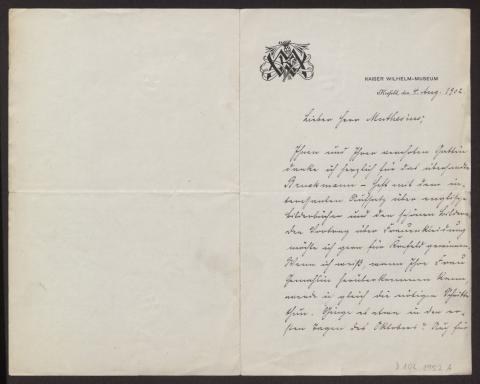 KAISER WILHELM-MUSEUM
Krefeld, den 4. Aug. 1902
Lieber Herr Muthesius,
Ihnen und Ihrer verehrten Gattin
danke ich herzlich für das übersandte
Bruckmann-Heft mit dem in-
teressanten Aufsatz über englische
Bilderbücher und den schönen Bildern.
Den Vortrag über Frauenkleidung
möchte ich gern für Krefeld gewinnen.
Wenn ich weiß, wann Ihre Frau
Gemahlin herüberkommen kann,
werde ich gleich die nötigen Schritte
thun. Ginge es etwa in den er-
sten Tagen des Oktobers? Auch für
D 102 1952 A